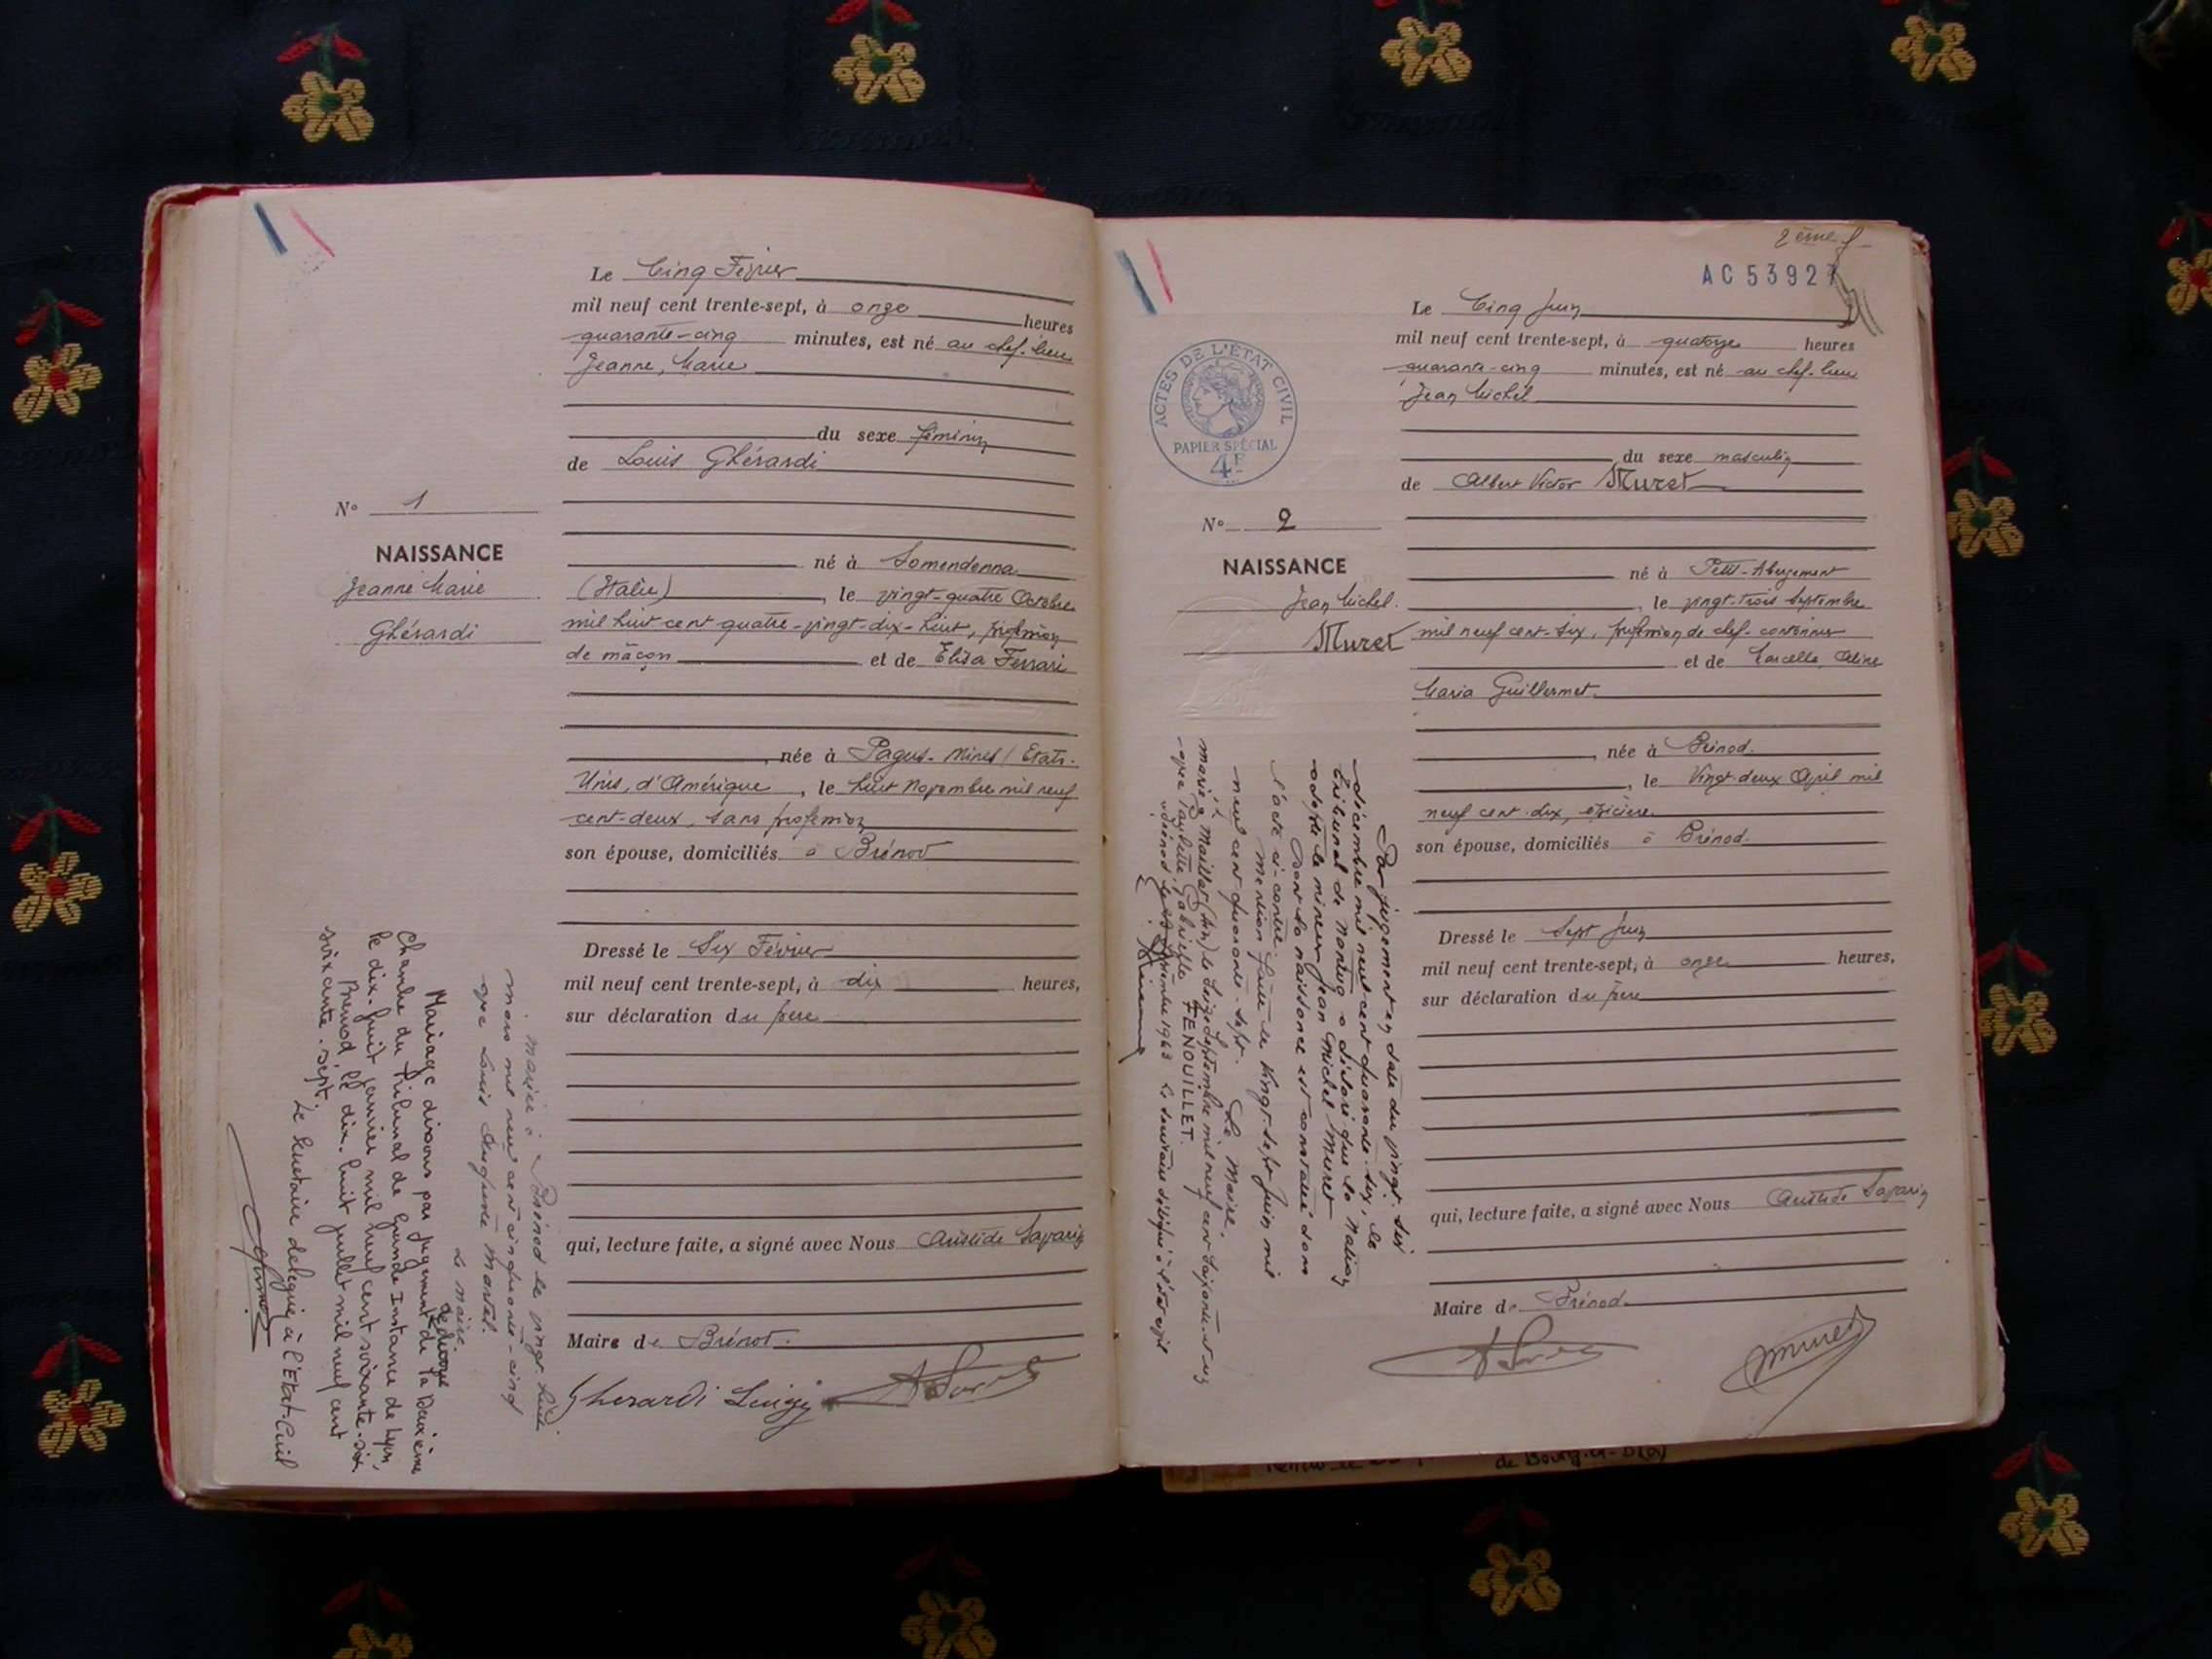 Le Cinq Février
mil neuf cent trente-sept, à onze heures
quarante-cinq minutes, est né au chef-lieu
Jeanne, Marie
du sexe féminin
de Louis Ghérardi
N° 1
NAISSANCE
Jeanne Marie
Ghérardi
né à Somendenna
(Italie), le vingt-quatre Octobre
mil huit cent quatre-vingt-dix-huit, profession
de mâçon et de Elisa Ferrari
née à Pagus-Mines (Etats-
Unis, d'Amérique, le huit Novembre mil neuf
cent-deux, sans profession
son épouse, domiciliés à Brénod
Dressé le Six Février
mil neuf cent trente-sept, à dix heures,
sur déclaration du père
qui, lecture faite, a signé avec Nous Aristide Savarin
Maire de Brénod.
Gherardi Luigi
mariée à Brénod le vingt huit
mars mil neuf cent cinquante-cinq
avec Louis Auguste Martel.
Le maire.
Mariage dissous par jugement de divorce de la Deuxième
Chambre du Tribunal de Grande Instance de Lyon,
le dix-huit janvier mil neuf cent soixante-six.
Brénod le dix-huit juillet mil neuf cent
soixante-sept.
Le Secrétaire délégué à l'Etat-Civil
2ème f
AC 53927
ACTES DE L'ÉTAT CIVIL
PAPIER SPÉCIAL
4F
Le Cinq Juin
mil neuf cent trente-sept, à quatorze heures
quarante-cinq minutes, est né au chef-lieu
Jean Michel
du sexe masculin
de Albert Victor Muret
N° 2
NAISSANCE
Jean Michel.
Muret
né à Petit-Abergement
, le vingt-trois Septembre
mil neuf cent-six, profession de chef-cantonnier
et de Marcelle, Aline
Maria Guillermet.
née à Brénod.
, le Vingt deux Avril mil
neuf cent-dix, épicière.
son épouse, domiciliés à Brénod.
Dressé le Sept Juin
mil neuf cent trente-sept, à onze heures,
sur déclaration du père
qui, lecture faite, a signé avec Nous Aristide Savarin
Maire de Brénod.
Muret
Par jugement en date du vingt-six
décembre mil neuf cent quarante-six, le
Tribunal de Nantua a déclaré que la Nation
adopte le mineur Jean Michel Muret
dont la naissance est constatée dans
l'acte ci-contre
Mention faite le Vingt-sept Juin mil
neuf cent quarante-sept. Le Maire.
marié à Maillat (Ain) le Seize Septembre mil neuf cent soixante et un
avec Paulette, Gabrielle FENOUILLET.
Brénod le Septembre 1963 Le secrétaire délégué à l'état civil
de Bourg.